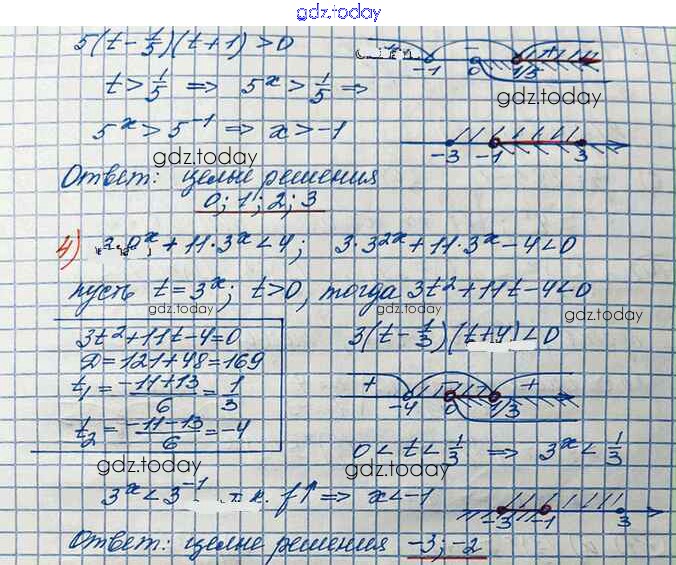 gdz.today
5(t-1/5)(t+1)>0
-1 0 1/5
t>1/5 => 5^x>1/5 =>
gdz.today
5^x>5^-1 => x>-1
-3 -1 3
gdz.today
Ответ: целые решения
0; 1; 2; 3
4) 9^x+11·3^x<4; 3·3^2x+11·3^x-4<0
пусть t=3^x; t>0, тогда 3t²+11t-4<0
gdz.today gdz.today gdz.today
3t²+11t-4=0
3(t-1/3)(t+4)<0
D=121+48=169
t₁=(-11+13)/6=1/3
+ +
-4 0 1/3
t₂=(-11-13)/6=-4
0<t<1/3 => 3^x<1/3
gdz.today gdz.today
3^x<3^-1 т.к. f↑ => x<-1
-3 -1 3
Ответ: целые решения -3; -2
gdz.today